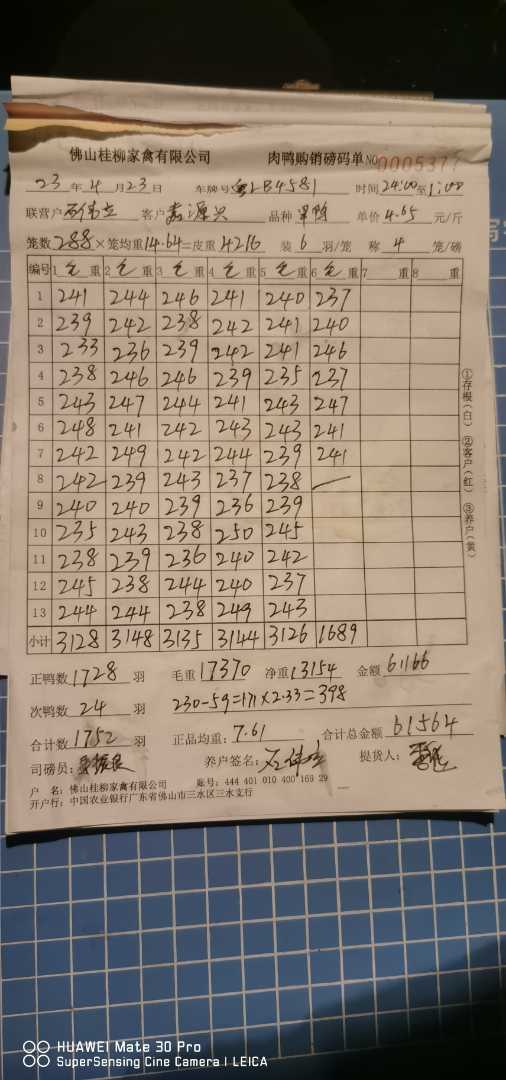 佛山桂柳家禽有限公司 肉鸭购销磅码单 NO 0005377
23 年 4 月 23 日 车牌号 粤LB4581 时间 24:00至1:00
联营户 石伟立 客户 源兴 品种 单价 4.65 元/斤
笼数 288 × 笼均重 14.64 = 皮重 4216 装 6 羽/笼 称 4 笼/磅
编号 1 毛 重 2 毛 重 3 毛 重 4 毛 重 5 毛 重 6 毛 重 7 重 8 重
1 241 244 246 241 240 237
2 239 242 238 242 241 240
3 233 236 239 242 241 246
4 238 246 246 239 235 237
5 243 247 244 241 243 247
6 248 241 242 243 243 241
7 242 249 242 244 239 241
8 242 239 243 237 238 —
9 240 240 239 236 239
10 235 243 238 250 245
11 238 239 236 240 242
12 245 238 244 240 237
13 244 244 238 249 243
小计 3128 3148 3135 3144 3126 1689
①存根(白) ②客户(红) ③养户(黄)
正鸭数 1728 羽 毛重 17370 净重 13154 金额 61166
次鸭数 24 羽 230-59=171×2.33=398
合计数 1752 羽 正品均重: 7.61 合计总金额 61564
司磅员: 养户签名: 石伟立 提货人:
户 名: 佛山桂柳家禽有限公司 账号: 444 401 010 400 169 29
开户行: 中国农业银行广东省佛山市三水区三水支行
HUAWEI Mate 30 Pro
SuperSensing Cine Camera | LEICA